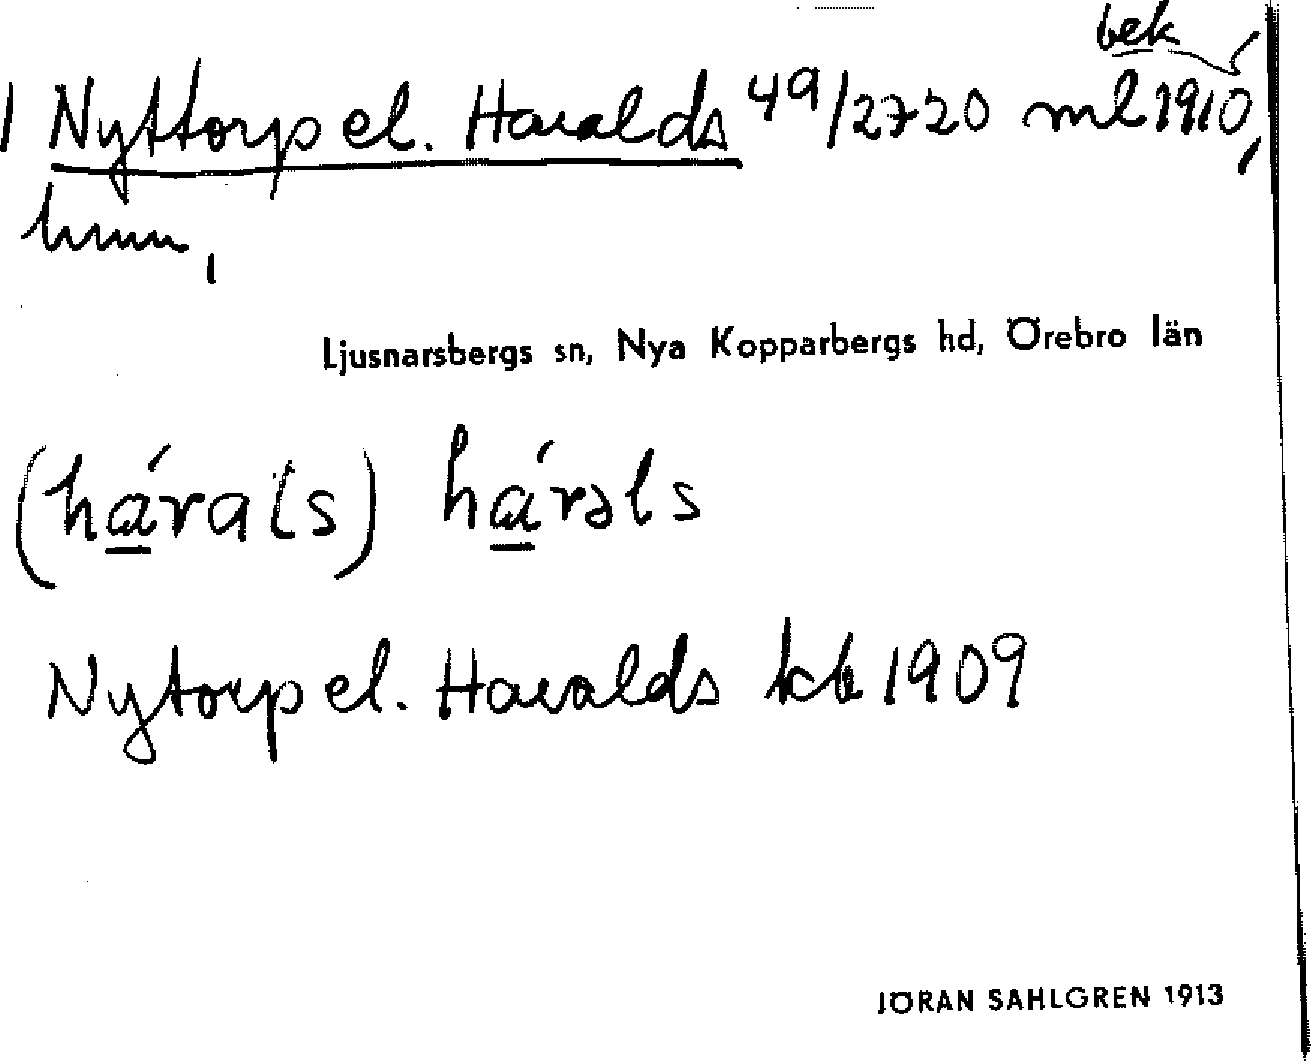 bek
1 Nyttorp el. Haralds 49/2720 ml 1910,
hmn,
Ljusnarsbergs sn, Nya Kopparbergs hd, Örebro län
(hára(s) hárəls
Nytorp el. Haralds kb 1909
JÖRAN SAHLGREN 1913